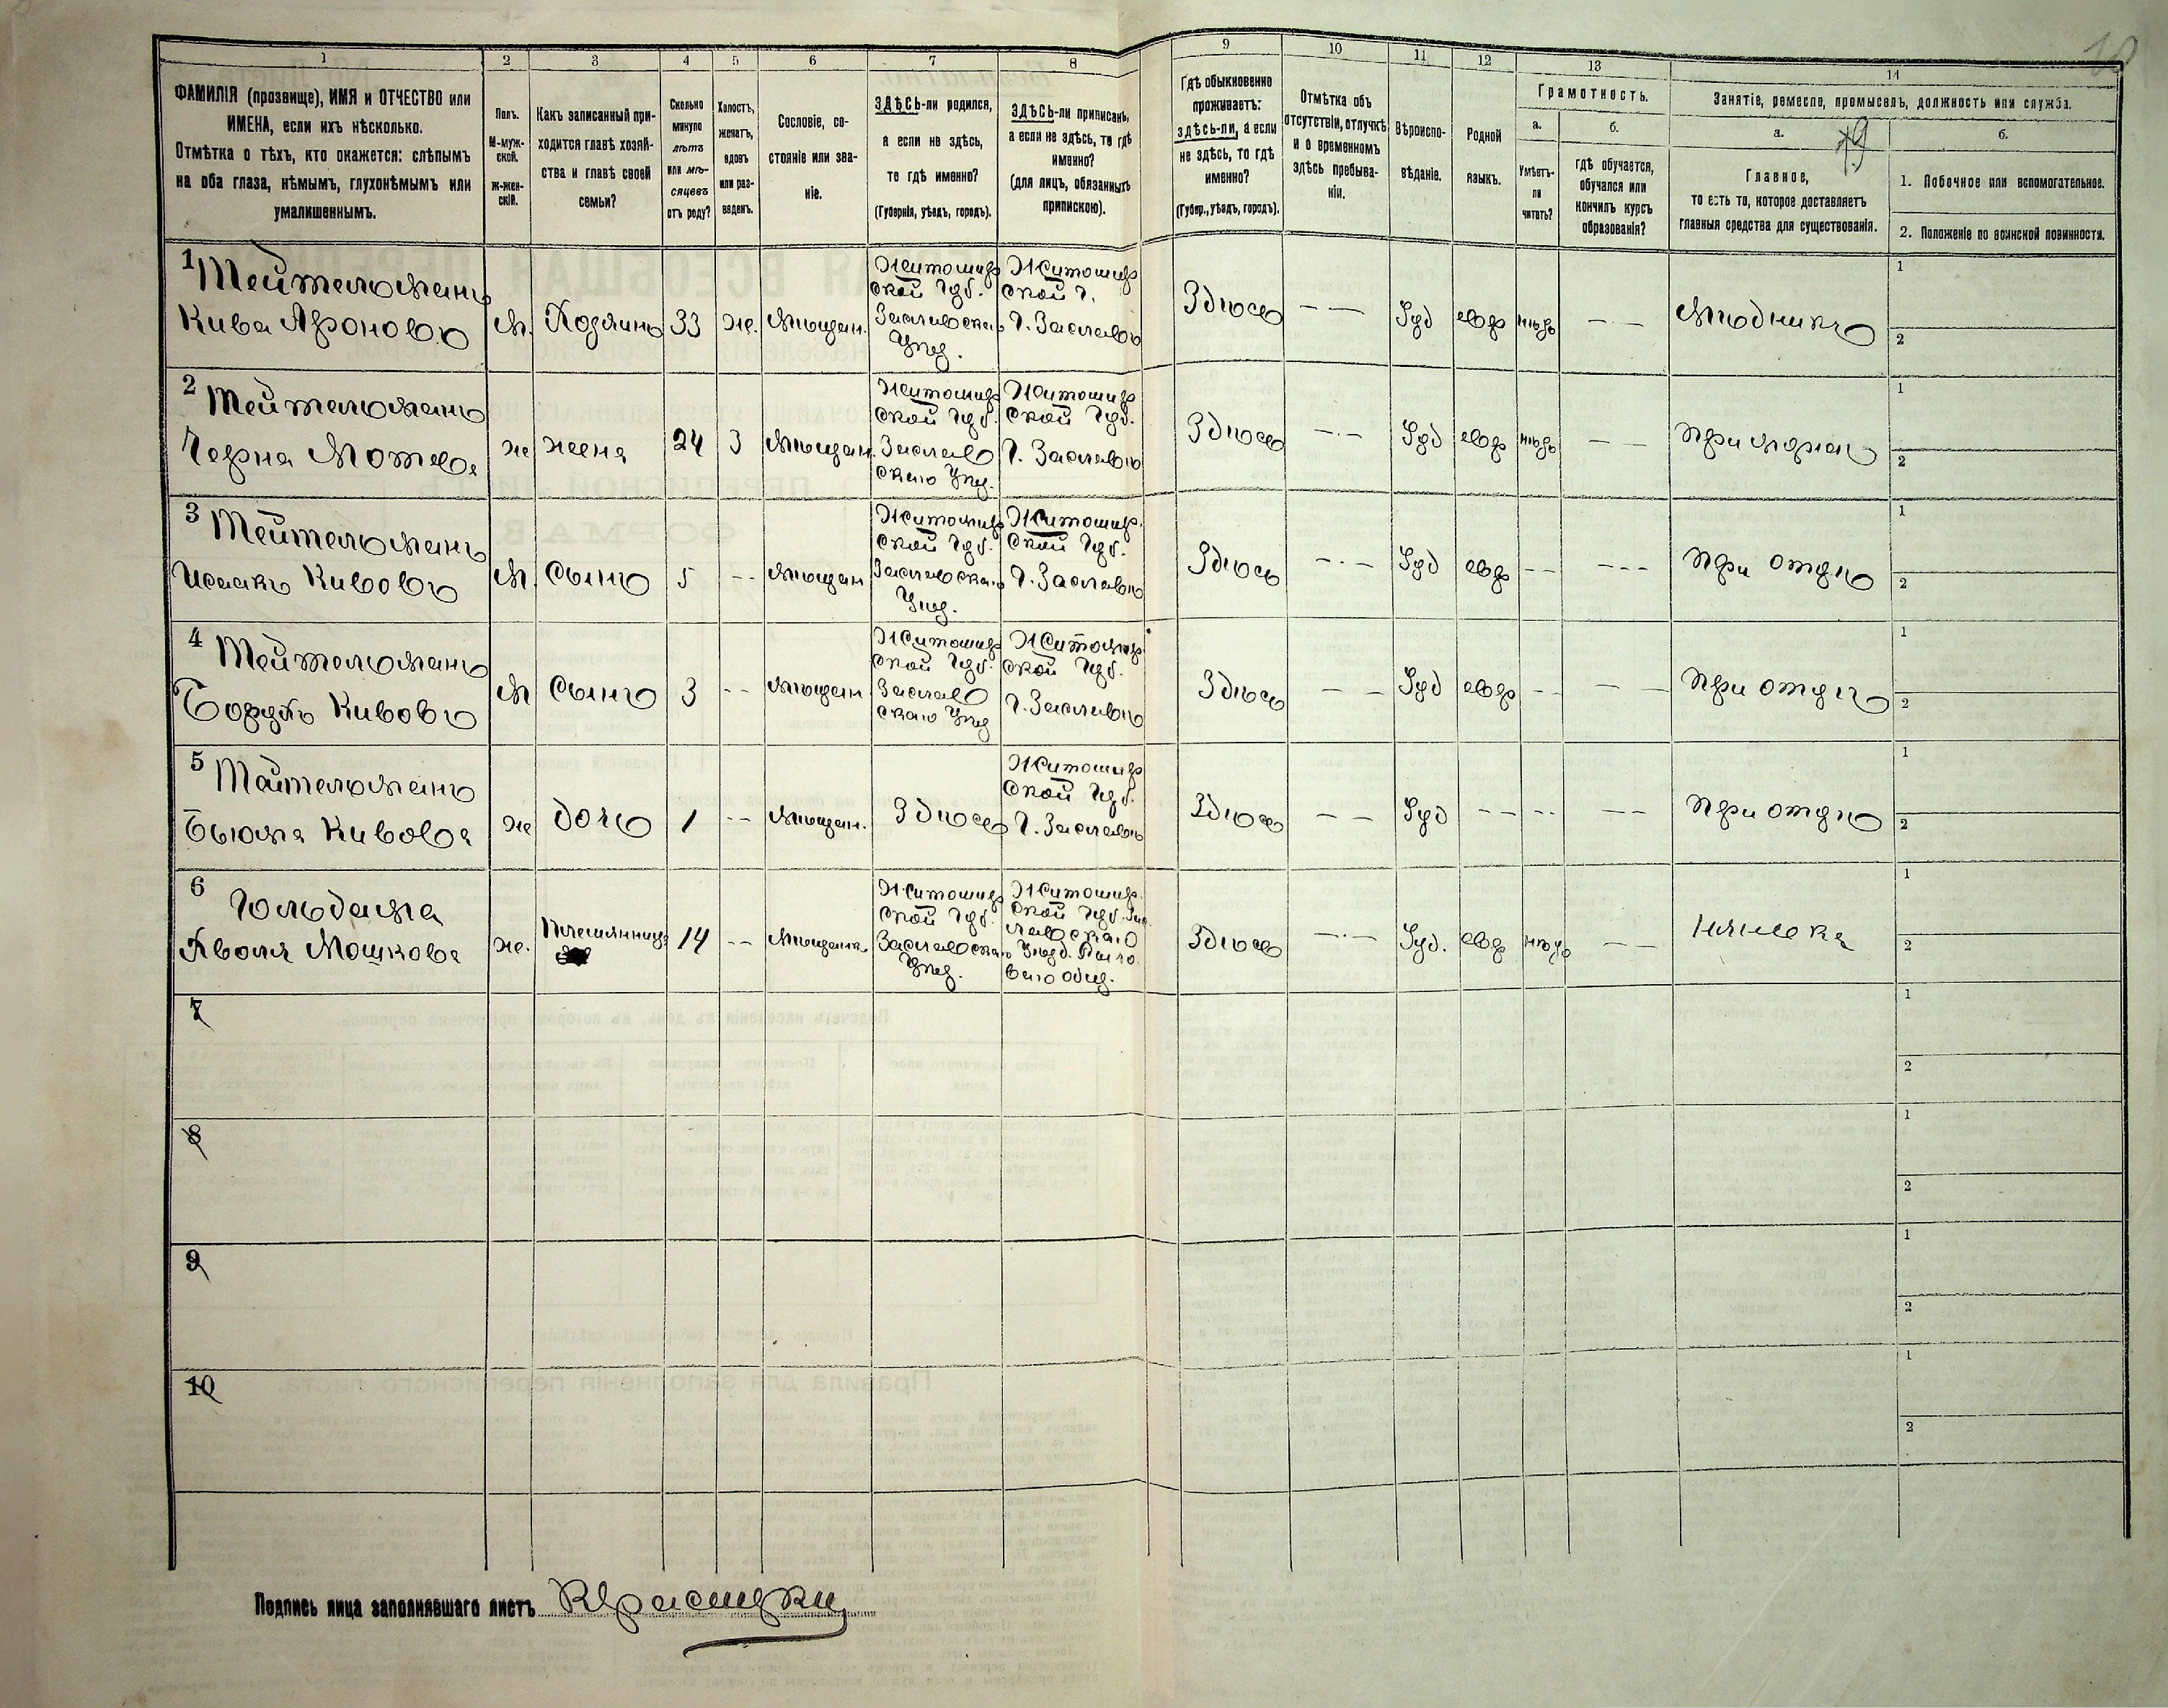 1 2 3 4 5 6 7 8 9 10 11 12 13 14
ФАМИЛІЯ (прозвище), ИМЯ и ОТЧЕСТВО или
ИМЕНА, если ихъ нѣсколько.
Отмѣтка о тѣхъ, кто окажется: слѣпымъ
на оба глаза, нѣмымъ, глухонѣмымъ или
умалишеннымъ.
Полъ.
М-муж-
ской.
ж-жен-
скій.
Какъ записанный при-
ходится главѣ хозяй-
ства и главѣ своей
семьи?
Сколько
минуло
лѣтъ
или мѣ-
сяцевъ
отъ роду?
Холостъ,
женатъ,
вдовъ
или раз-
веденъ.
Сословіе, со-
стояніе или зва-
ніе.
ЗДѢСЬ-ли родился,
а если не здѣсь,
то гдѣ именно?
(Губернія, уѣздъ, городъ).
ЗДѢСЬ-ли приписанъ,
а если не здѣсь, то гдѣ
именно?
(для лицъ, обязанныхъ
припискою).
Гдѣ обыкновенно
проживаетъ:
здѣсь-ли, а если
не здѣсь, то гдѣ
именно?
(Губер., уѣздъ, городъ).
Отмѣтка объ
отсутствіи, отлучкѣ
и о временномъ
здѣсь пребыва-
ніи.
Вѣроиспо-
вѣданіе.
Родной
языкъ.
Грамотность.
а.
Умѣетъ-
ли
читать?
б.
гдѣ обучается,
обучался или
кончилъ курсъ
образованія?
Занятіе, ремесло, промыселъ, должность или служба.
а.
Главное,
то есть то, которое доставляетъ
главныя средства для существованія.
б.
1. Побочное или вспомогательное.
2. Положеніе по воинской повинности.
1 Тейтельманъ
Кива Ароновъ
М. Хозяинъ 33 же. Мѣщан.
Житомир
ской Губ.
Заславскаго
Уѣз.
Житомир
ской г.
г. Заславъ
Здѣсь — — Іуд евр нѣтъ — — Мѣдникъ
1
2
2 Тейтельманъ
Черна Мотева
же жена 24 З Мѣщан.
Житомир
ской Губ.
Заслав
скаго Уѣз.
Житомир
ской Губ.
г. Заславъ
Здѣсь — — Іуд евр нѣтъ — — при мужѣ
1
2
3 Тейтельманъ
Исаакъ Кивовъ
М. Сынъ 5 -- Мѣщан
Житомир
ской Губ.
Заславскаго
Уѣз.
Житомир.
ской Губ.
г. Заславъ
Здѣсь — — Іуд евр -- --- при отцѣ
1
2
4 Тейтельманъ
Кивовъ
М Сынъ 3 -- Мѣщан
Житомир
ской Губ.
Заслав
скаго Уѣз
Житомир
ской Губ.
г. Заславъ
Здѣсь — — Іуд евр -- — — при отцѣ
1
2
5 Тайтельманъ
Кивова
же дочь 1 -- Мѣщан. Здѣсь
Житомир
ской Губ.
г. Заславъ
Здѣсь — — Іуд -- -- -- при отцѣ
1
2
6 Гольдама
Мошкова
же. Племянница 14 -- Мѣщанка
Житомир
ской Губ.
Заславскаго
Уѣз.
Житомир.
ской Губ. Зас
лавскаго
Уѣзд.
ваго общ.
Здѣсь — — Іуд. евр нѣтъ — — нянька
1
2
7
1
2
8
1
2
9
1
2
10
1
2
Подпись лица заполнявшаго листъ